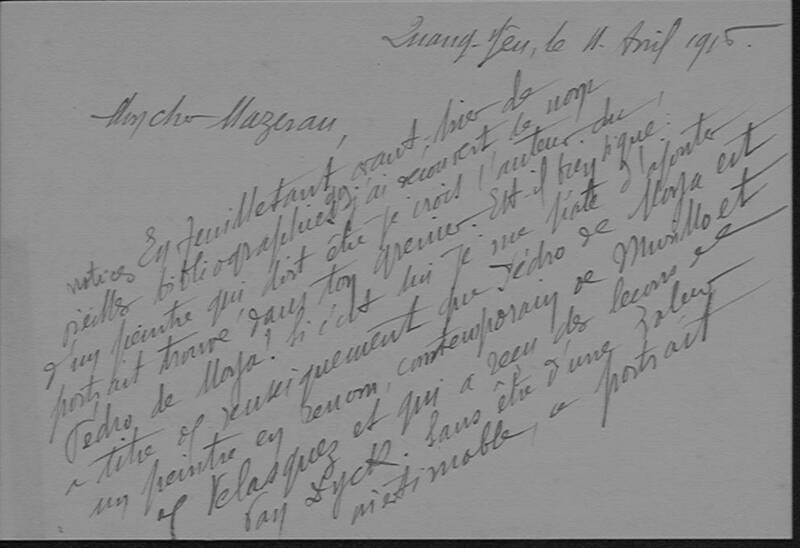 Quang-Yen, le 11 Avril 1915.
Mazerau,
En feuilletant, avant-hier de
vieilles notices bibliographiques, j'ai découvert le nom
d'un peintre qui doit être je crois l'auteur du
portrait trouvé dans ton grenier. Est-il bien signé:
Pédro de Moya? Si c'est lui je me hâte d'ajouter
à titre de renseignement que Pédro de Moya est
un peintre en renom, contemporain de Murillo et
de Velasquez et qui a reçu des leçons de
Van Dyck. Sans être d'une valeur
inestimable, ce portrait